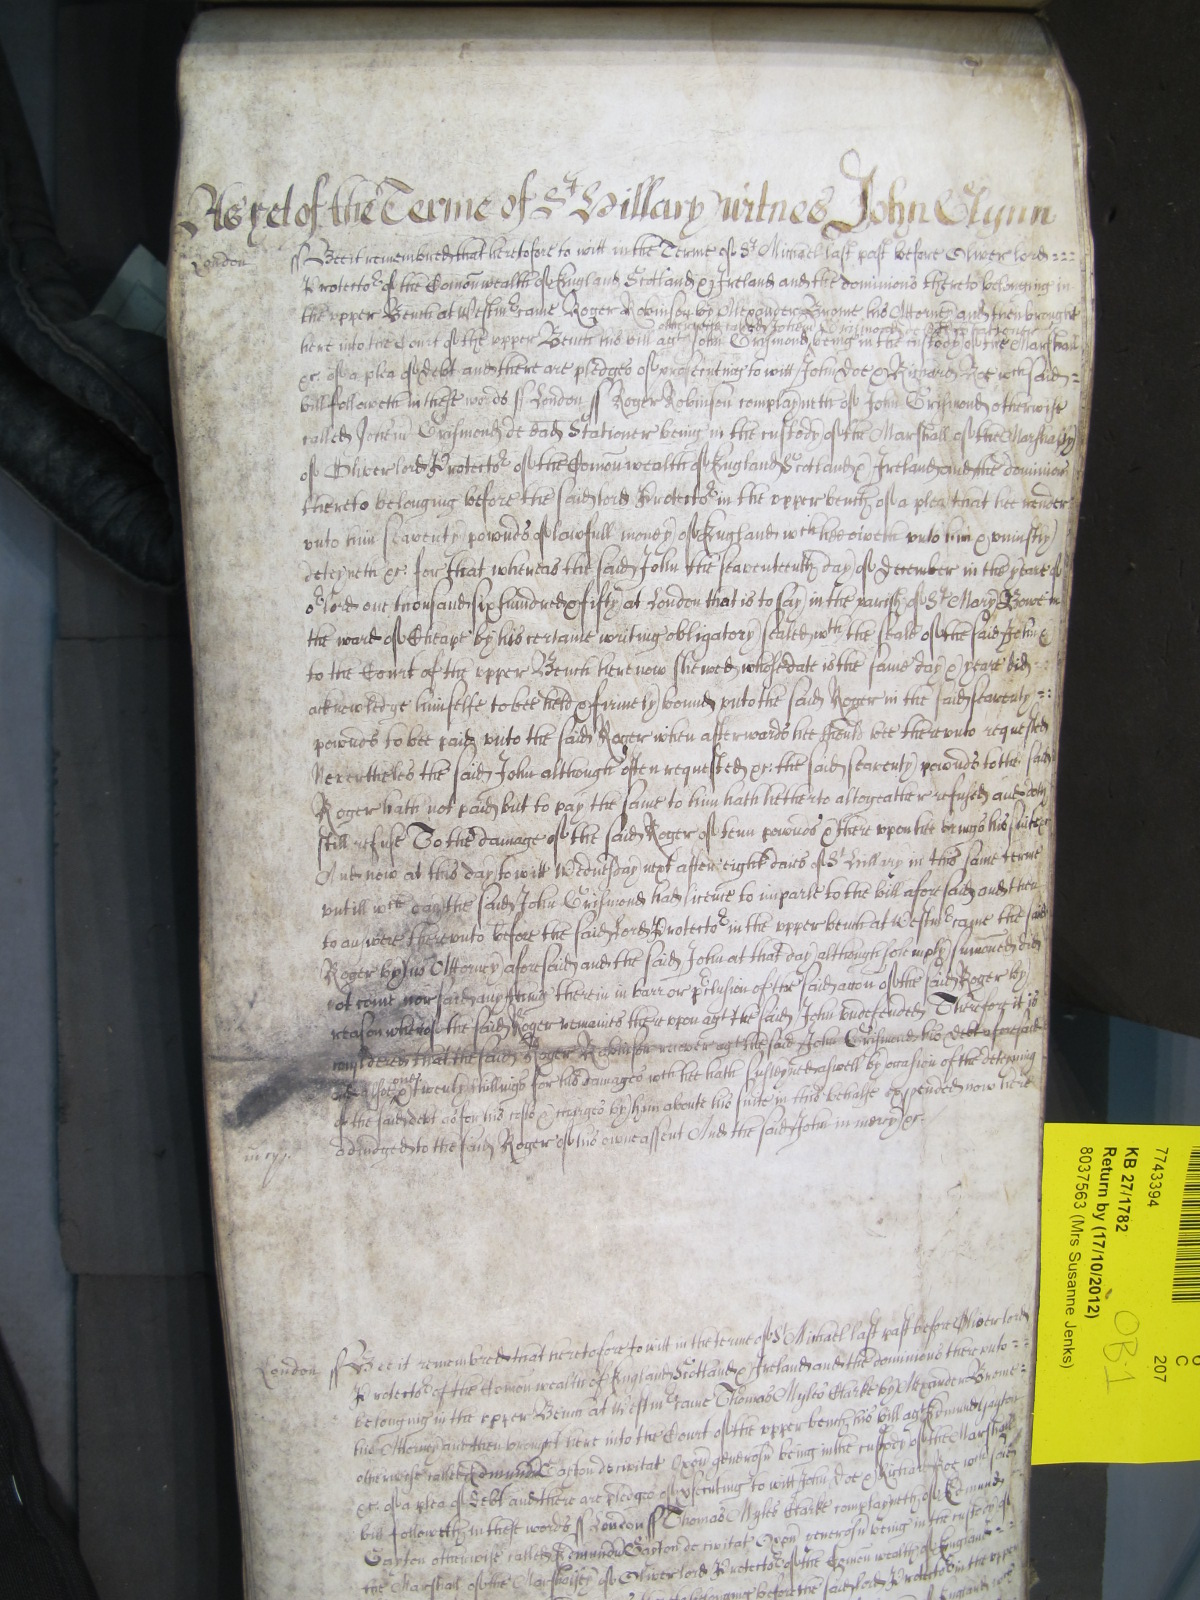 As yet of the Terme of St Hillary witnes John Glynn
London ss Bee it remembred that heretofore to witt in the Terme of St Michael last past before Oliver lord
Protector of the Comonwealth of England Scotland & Ireland and the dominions thereto belonging in
the upper Bench at Westmr came Roger Robinson by Alexander Brome his Attorney and then brought
otherwise called John Crismond de stationer
here into the Court of the upper Bench his bill agt John Crismond being in the custody of the Marshall
&c. of a plea of debt and there are pledges of prosecuting to witt John Doe & Richard Roe wch said
bill followeth in these words ss London ss Roger Robinson complayneth of John Crismond otherwise
called John Crismond de ead Stationer being in the custody of the Marshall of the Marshalsy
of Oliver lord Protector of the Comonwealth of England Scotland & Ireland and the dominions
thereto belonging before the said lord Protector in the upper bench of a plea that hee render
unto him seaventy pownds of lawfull money of England wch hee oweth unto him & uniustly
deteyneth &c. for that whereas the said John the seaventeenth day of December in the yeare of
or lord one thousand six hundred & fifty at London that is to say in the parish of St Mary Bowe in
the ward of Cheape by his certaine writing obligatory sealed wth the seale of the said John &
to the Court of the upper Bench here now shewed whose date is the same day & yeare did
acknowledge himselfe to bee held & firmely bound unto the said Roger in the said seaventy
pownds to bee paid unto the said Roger when afterwards hee should bee thereunto requested
Neverthelesse the said John although often requested &c. the said seaventy pownds to the said
Roger hath not paid but to pay the same to him hath hetherto altogeather refused and doth
still refuse To the damage of the said Roger of tenn pownds & thereupon hee brings his suite &c
And now at this day to witt Wednesday next after eight daies of St Hillary in this same terme
untill wch day the said John Crismond had licence to imparle to the bill aforesaid and then
to answere thereunto before the said Lord Protector in the upper bench at Westmr came the said
Roger by his Attorney aforesaid and the said John at that day although solemply summoned did
not come nor said any thing therein in barr or preclusion of the said accon of the said Roger by
reason whereof the said Roger remaines thereupon agt the said John undefended Therefore it is
considered that the said Roger Robinson recover agt the said John Crismond his debt aforesaid
And alsoe one & twenty shillings for his damages wch hee hath susteyned aswell by occasion of the deteyning
of the said debt as for his costs & charges by him aboute his suite in this behalfe expended now here
adiudged to the said Roger of his owne assent And the said John in mercy &c.
mercy.
London ss Bee it remembred that heretofore to witt in the terme of St Michael last past before Oliver lord
Protector of the Comonwealth of England Scotland & Ireland and the dominions thereunto
belonging in the upper Bench at Westmr came Thomas Myles Clarke by Alexander Brome
his Attorney and then brought here into the Court of the upper bench his bill agt Edmund Gayton
otherwise called Edmund Gayton de civitat Oxon generosu being in the custody of the Marshall
&c. of a plea of debt and there are pledges of prosecuting to witt John Doe & Richard Roe wch said
bill followeth in these words ss London ss Thomas Myles Clarke complayneth of Edmund
Gayton otherwise called Edmund Gayton de civitat Oxon generosu being in the custody of
the Marshall of the Marshalsey of Oliver lord Protector of the Comon wealth of England
belonging before the said lord Protector in the upper
of England wch
7743394
KB 27/1782
Return by (17/10/2012)
8037563 (Mrs Susanne Jenks)
OB1
C
207